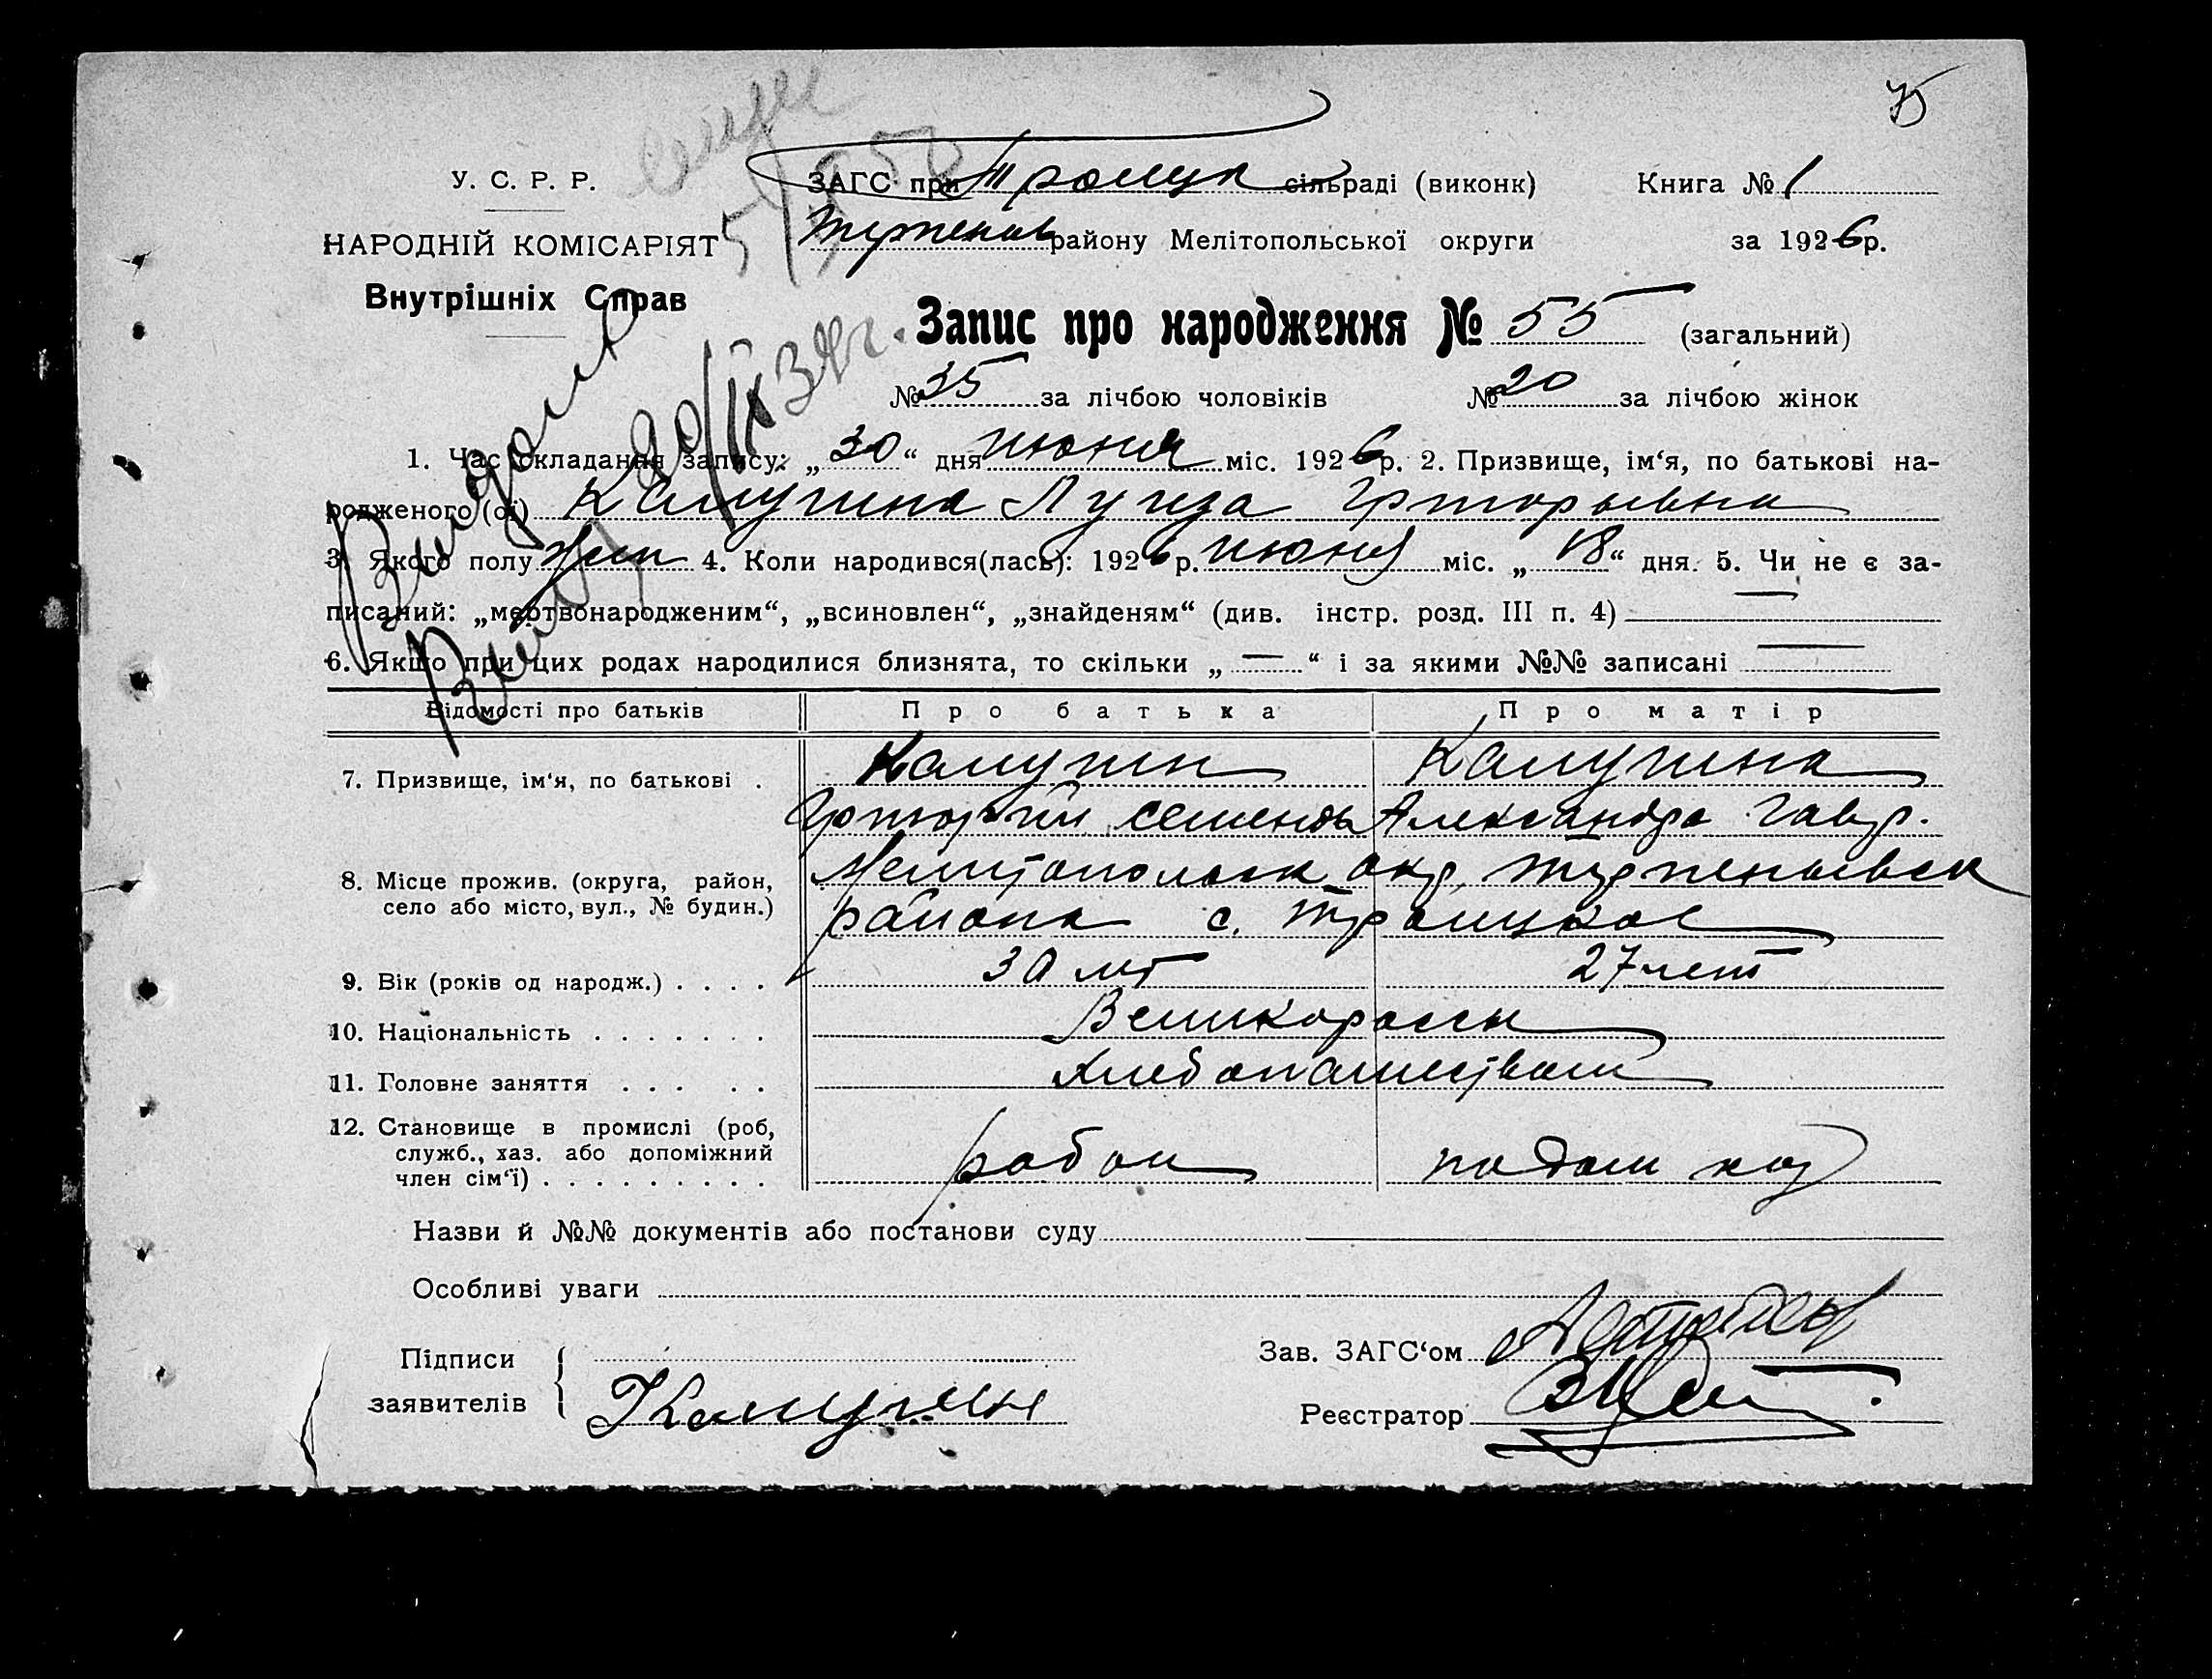 75
У. С. Р. Р.
НАРОДНІЙ КОМІСАРІЯТ
Внутрішніх Справ
ЗАГС при Троицк сільраді (виконк) Книга № 1
району Мелітопольської округи за 1926 р.
Запис про народження № 55 (загальний)
№ 35 за лічбою чоловіків № 20 за лічбою жінок
1. Час складання запису: „30“ дня июня міс. 1926 р. 2. Призвище, ім‘я, по батькові на-
родженого (ої) Калугина Луиза Григорьевна
3. Якого полу жен 4. Коли народився(лась): 1926 р. июня міс. „18“ дня. 5. Чи не є за-
писаний: „мертвонародженим“, „всиновлен“, „знайденям“ (див. інстр. розд. III п. 4) —
6. Якщо при цих родах народилися близнята, то скільки „—“ і за якими №№ записані —
Відомості про батьків Про батька Про матір
7. Призвище, ім‘я, по батькові . Калугин Калугина
Григорий Семенов Александра Гавр.
8. Місце прожив. (округа, район, село або місто, вул., № будин.) Мелитопольск окр,
района с. Троицкое
9. Вік (років од народж.) . . . . 30 лет 27 лет
10. Національність . . . . . . . Великороссы
11. Головне заняття . . . . . Хлебопашеством
12. Становище в промислі (роб, служб., хаз. або допоміжний член сім‘ї) . . . . . . . . .
по дом хоз
Назви й №№ документів або постанови суду
Особливі уваги
Підписи заявителів Калугин
Зав. ЗАГС‘ом
Реєстратор